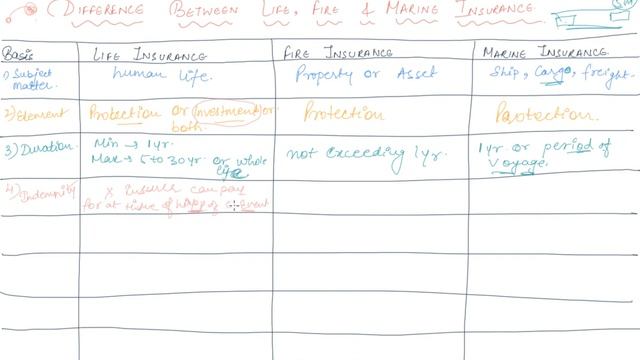 DIFFERENCE BETWEEN LIFE, FIRE & MARINE INSURANCE.
Basis LIFE INSURANCE FIRE INSURANCE MARINE INSURANCE
1) Subject matter. human life. Property or Asset Ship, Cargo, freight.
2) Element Protection or investment or both. Protection Protection.
3) Duration. Min → 1yr. Max → 5 to 30yr. or whole life not exceeding 1yr. 1yr or period of Voyage.
4) Indemnity x
for at time of happ of event